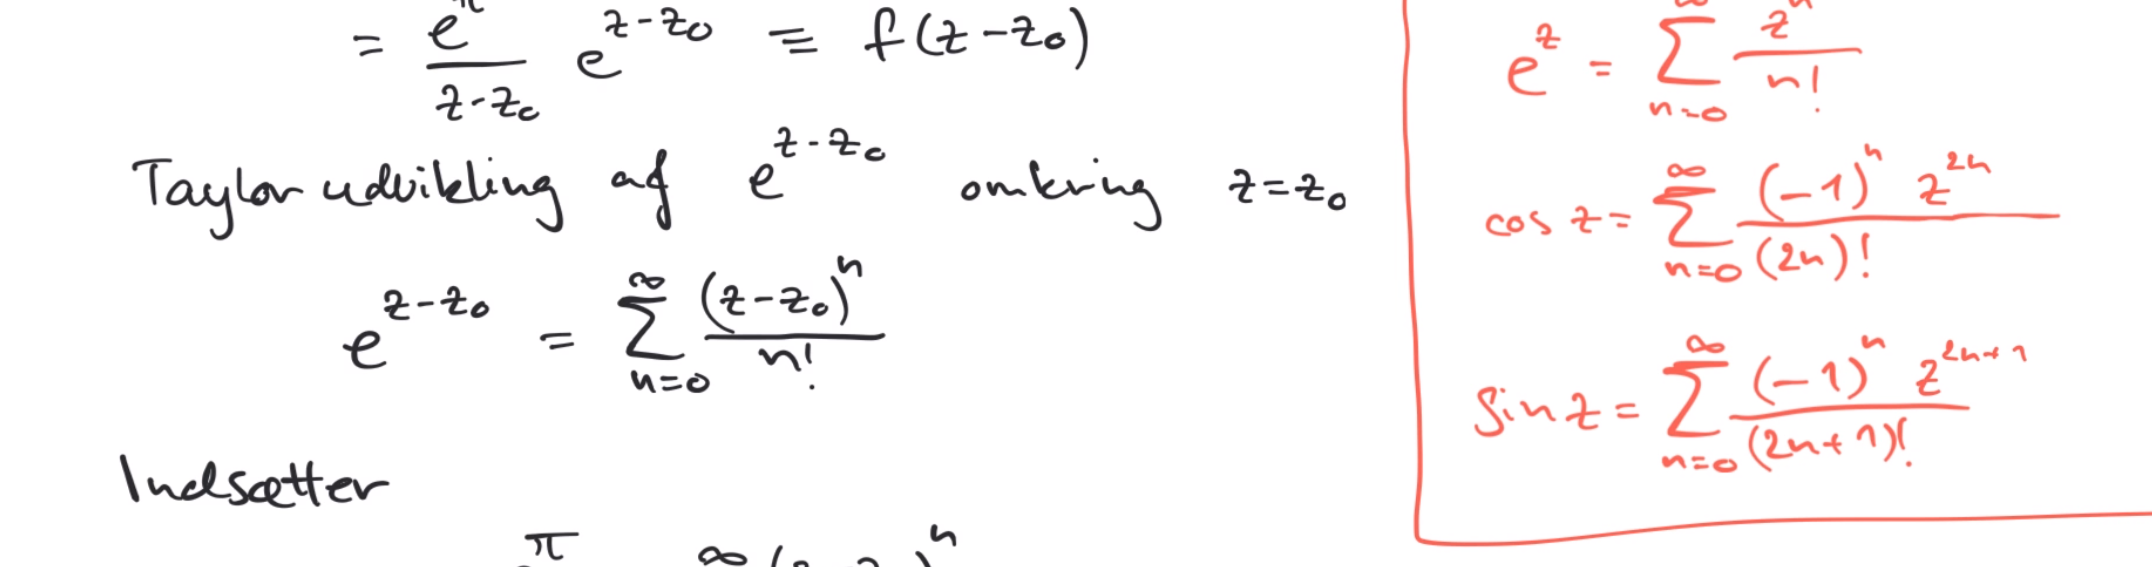 = e^π/(z-z₀) e^(z-z₀) = f(z-z₀)
Taylor udvikling af e^(z-z₀) omkring z=z₀
e^(z-z₀) = ∑_(n=0)^∞ (z-z₀)^n/n!
Indsætter
π ∞ n
e^z = ∑_(n=0)^∞ z^n/n!
cos z = ∑_(n=0)^∞ (-1)^n z^(2n)/(2n)!
sin z = ∑_(n=0)^∞ (-1)^n z^(2n+1)/(2n+1)!